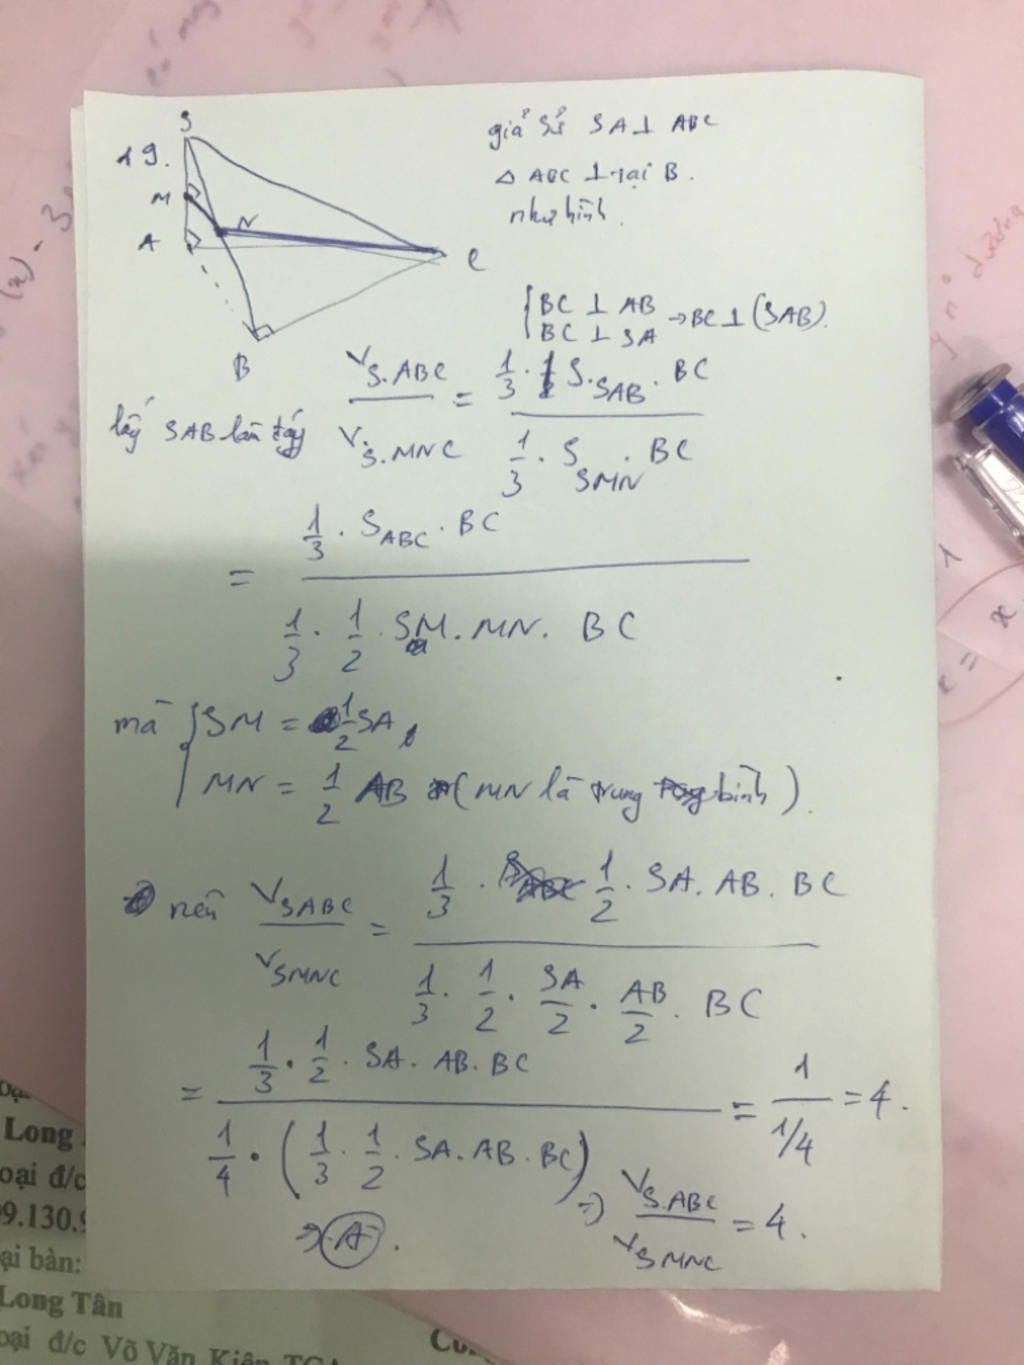 19.
S
M
N
A
C
B
giả sử SA⊥ ABC
Δ ABC ⊥ tại B.
như hình.
{BC ⊥ AB
BC ⊥ SA → BC ⊥ (SAB).
lấy SAB làm đáy V_S.ABC / V_S.MNC = (1/3 . S_SAB . BC) / (1/3 . S_SMN . BC)
= (1/3 . S_ABC . BC) / (1/3 . 1/2 . SM . MN . BC)
mà {SM = 1/2 SA,
MN = 1/2 AB (MN là trung bình).
nên V_SABC / V_SMNC = (1/3 . 1/2 . SA . AB . BC) / (1/3 . 1/2 . SA/2 . AB/2 . BC)
= (1/3 . 1/2 . SA . AB . BC) / (1/4 . (1/3 . 1/2 . SA . AB . BC)) = 1 / 1/4 = 4.
⇒ V_S.ABC / V_SMNC = 4.
⇒ A.
Long
oại đ/c
09.130.
ại bàn:
Long Tân
oại đ/c Võ Văn Kiên